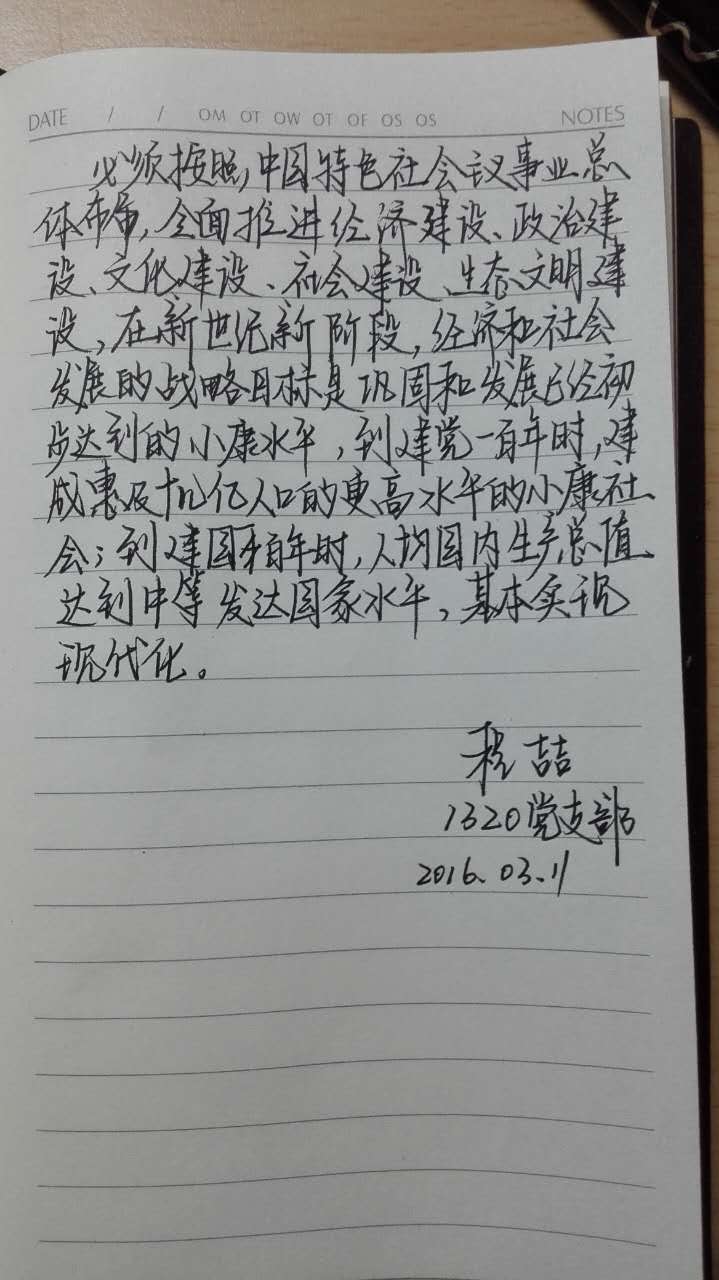 DATE / / OM OT OW OT OF OS OS NOTES
必须按照,中国特色社会议事业总
体布局,全面推进经济建设、政治建
设、文化建设、社会建设、生态文明建
设,在新世纪新阶段,经济和社会
发展的战略目标是巩固和发展已经初
步达到的小康水平,到建党一百年时,建
成惠及十几亿人口的更高水平的小康社
会;到建国一百年时,人均国内生产总值
达到中等发达国家水平,基本实现
现代化。
程喆
1320党支部
2016.03.11